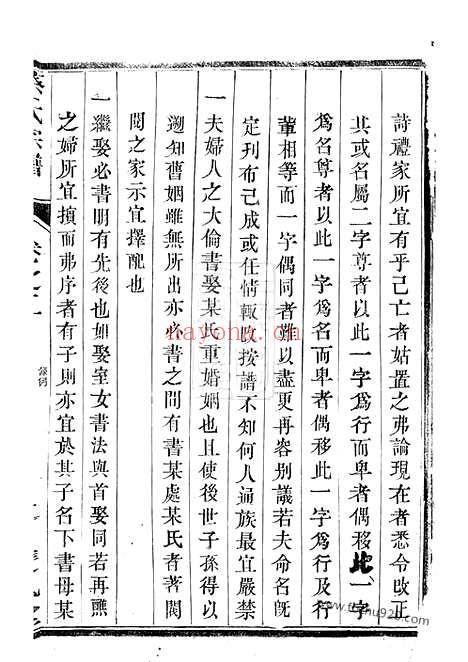 詩禮家所宜有乎已亡者姑置之弗論現在者悉令改正
其或名屬二字尊者以此一字爲行而卑者偶移此一字
爲名尊者以此一字爲名而卑者偶移此一字爲行及行
輩相等而一字偶同者難以盡更再容別議若夫命名旣
定刊布已成或任情輒改按譜不知何人通族最宜嚴禁
一夫婦人之大倫書娶某氏重婚姻也且使後世子孫得以
遡知舊姻雖無所出亦必書之間有書某處某氏者著閥
閱之家示宜擇配也
一繼娶必書明有先後也如娶室女書法與首娶同若再醮
之婦所宜擯而弗序者有子則亦宜於其子名下書母某
氏宗譜
條例
nayong.cn